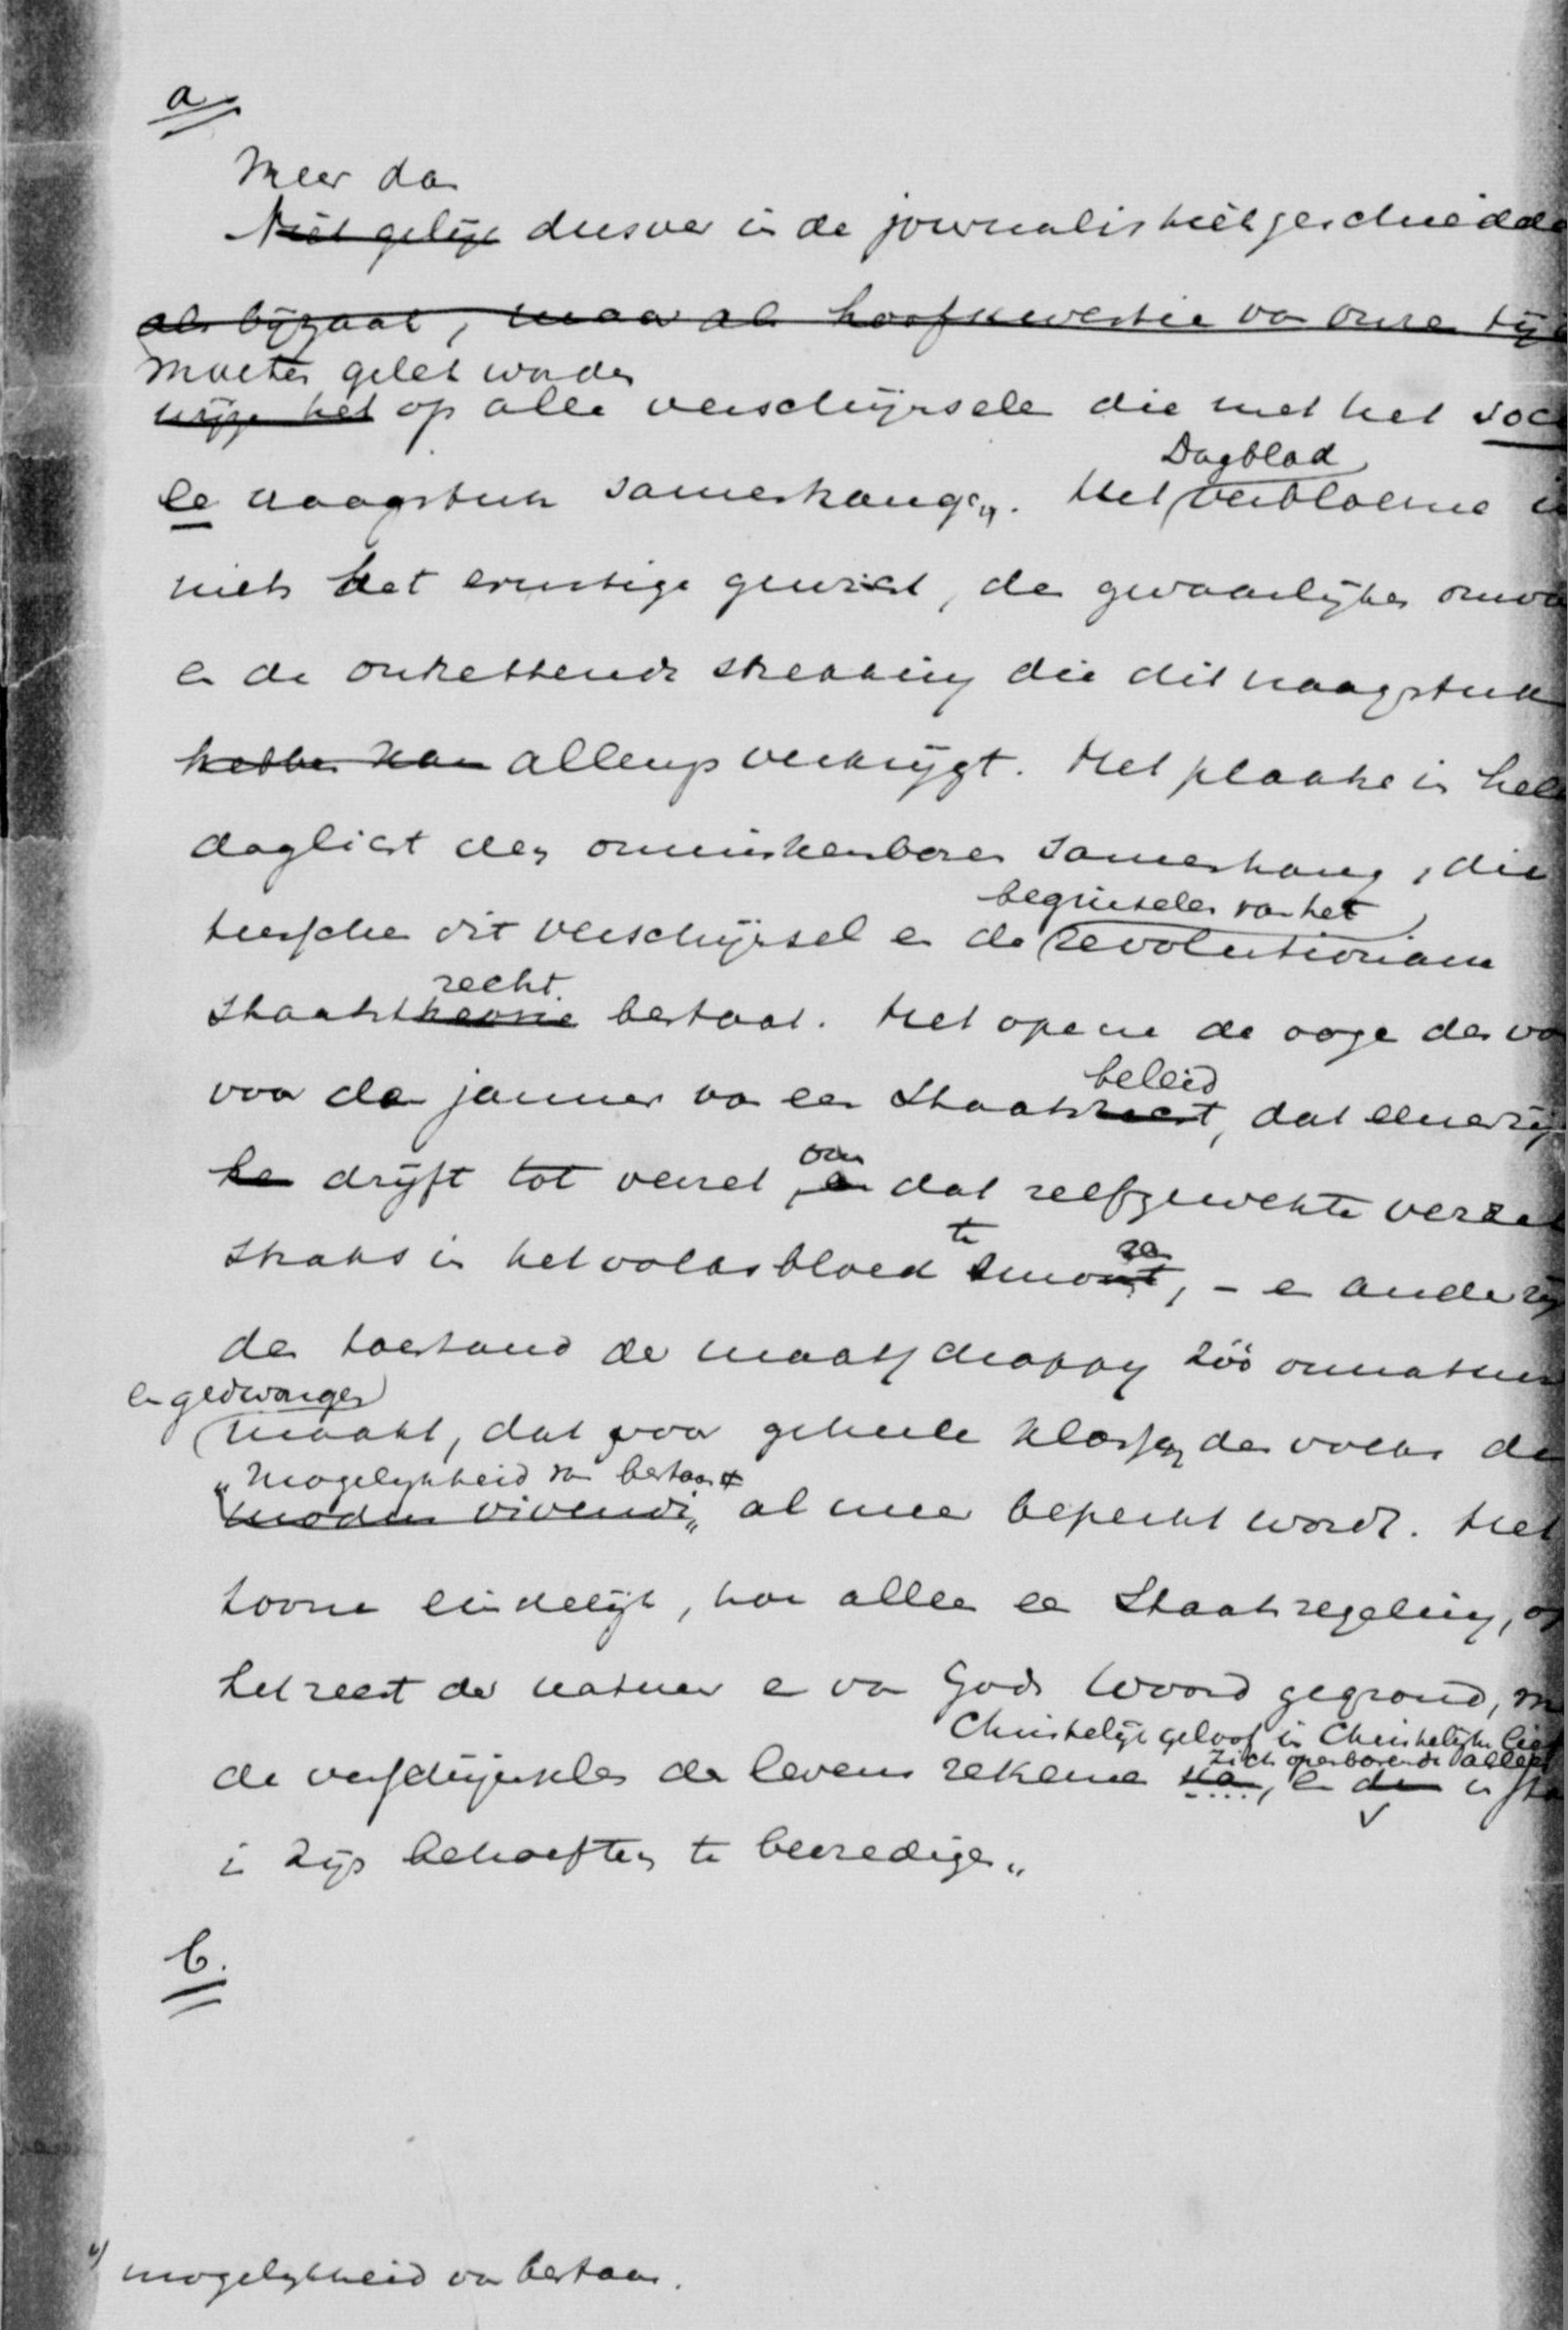 a
Meer dan
Niet gelijk dusver in de journalistiek geschiedde
als bijzaak, maar als hoofdkwestie van onzen tij
Moeten gelet worden
wijze het op alle verschijnselen die met het soc
le vraagstuk samenhangen. Het verbloeme
Dagblad
niets het ernstige gewicht, den gevaarlijken omva
en de ontzettende strekking die dit vraagstuk
hebben kan allengs verkrijgt. Het plaatse in hel
daglicht den onmiskenbaren samenhang, die
beginselen van het
tusschen dit verschijnsel en de revolutionaire
recht
Staatstheorie bestaat. Het opene de ooge des vo
beleid
voor den jammer van een Staatsrecht, dat eenerzij
om
hen drijft tot verzet, en dat zelfgewekte verzet
te ren
straks in het volksbloed smoort, - en anderzij
den toestand der maatschappij zóó onnatuur
en gedwongen
maakt, dat voor geheele klassen des volks de
"mogelijkheid van bestaan"
modus vivendi" al meer beperkt wordt. Het
toone eindelijk, hoe alleen een Staatsregeling, op
het recht der natuur en van Gods Woord gegrond, m
Christelijk geloof in Christelijke lief
zich openbarende alleen
de verschijnselen des levens rekenen kan, en den in sta
is zijn behoeften te bevredigen"
b.
mogelijkheid van bestaan.